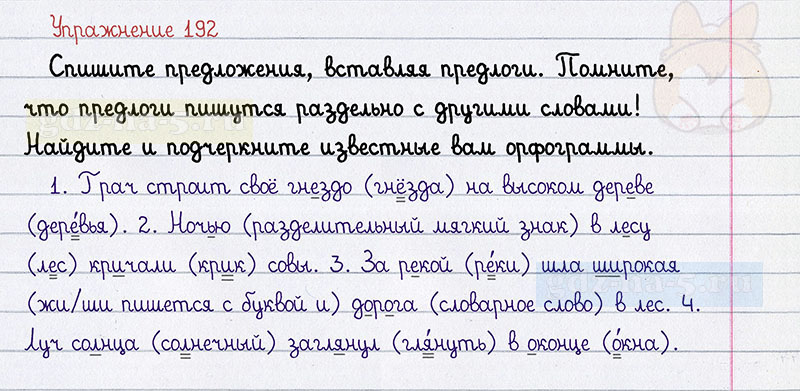 Упражнение 192
Спишите предложения, вставляя предлоги. Помните,
что предлоги пишутся раздельно с другими словами!
Найдите и подчеркните известные вам орфограммы.
1. Грач строит своё гнездо (гнёзда) на высоком дереве
(дере́вья). 2. Ночью (разделительный мягкий знак) в лесу
(лес) кричали (крик) совы. 3. За рекой (ре́ки) шла широкая
(жи/ши пишется с буквой и) дорога (словарное слово) в лес. 4.
Луч солнца (солнечный) заглянул (гля́нуть) в оконце (о́кна).